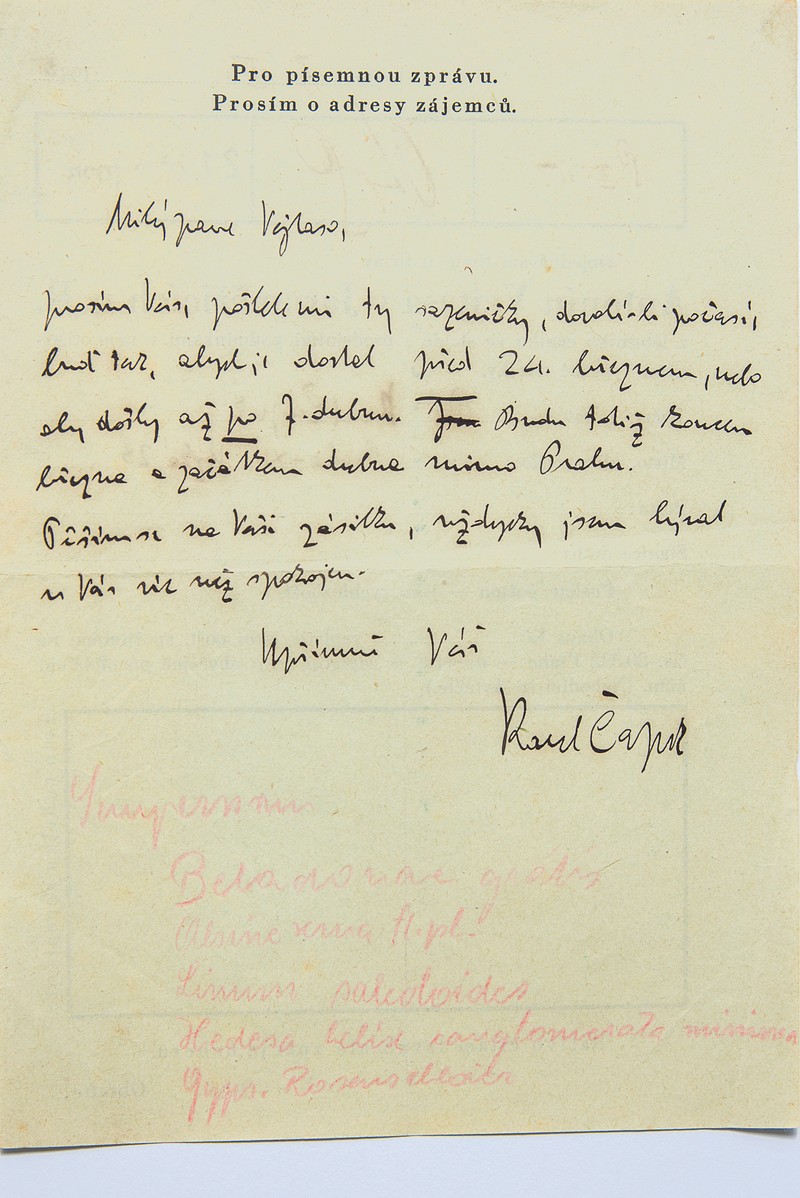 Pro písemnou zprávu.
Prosím o adresy zájemců.
Milý pane Vojtaso,
prosím Vás, pošlete mi ty sazeničky, dovolí-li počasí,
buď tak, abych je dostal před 24. březnem, nebo
aby došly až po 7. dubnu. Jsem Budu totiž koncem
března a začátkem dubna mimo Prahu.
Těším se na Vaši zásilku, vždycky jsem býval
u Vás víc než spokojen.
Upřímně Váš
Karel Čapek
Sempervivum
Beladonae gratis
Alsine verna fl. pl.
Linum salsoloides
Hedera helix conglomerata minima
Gyps. Rosenschleier